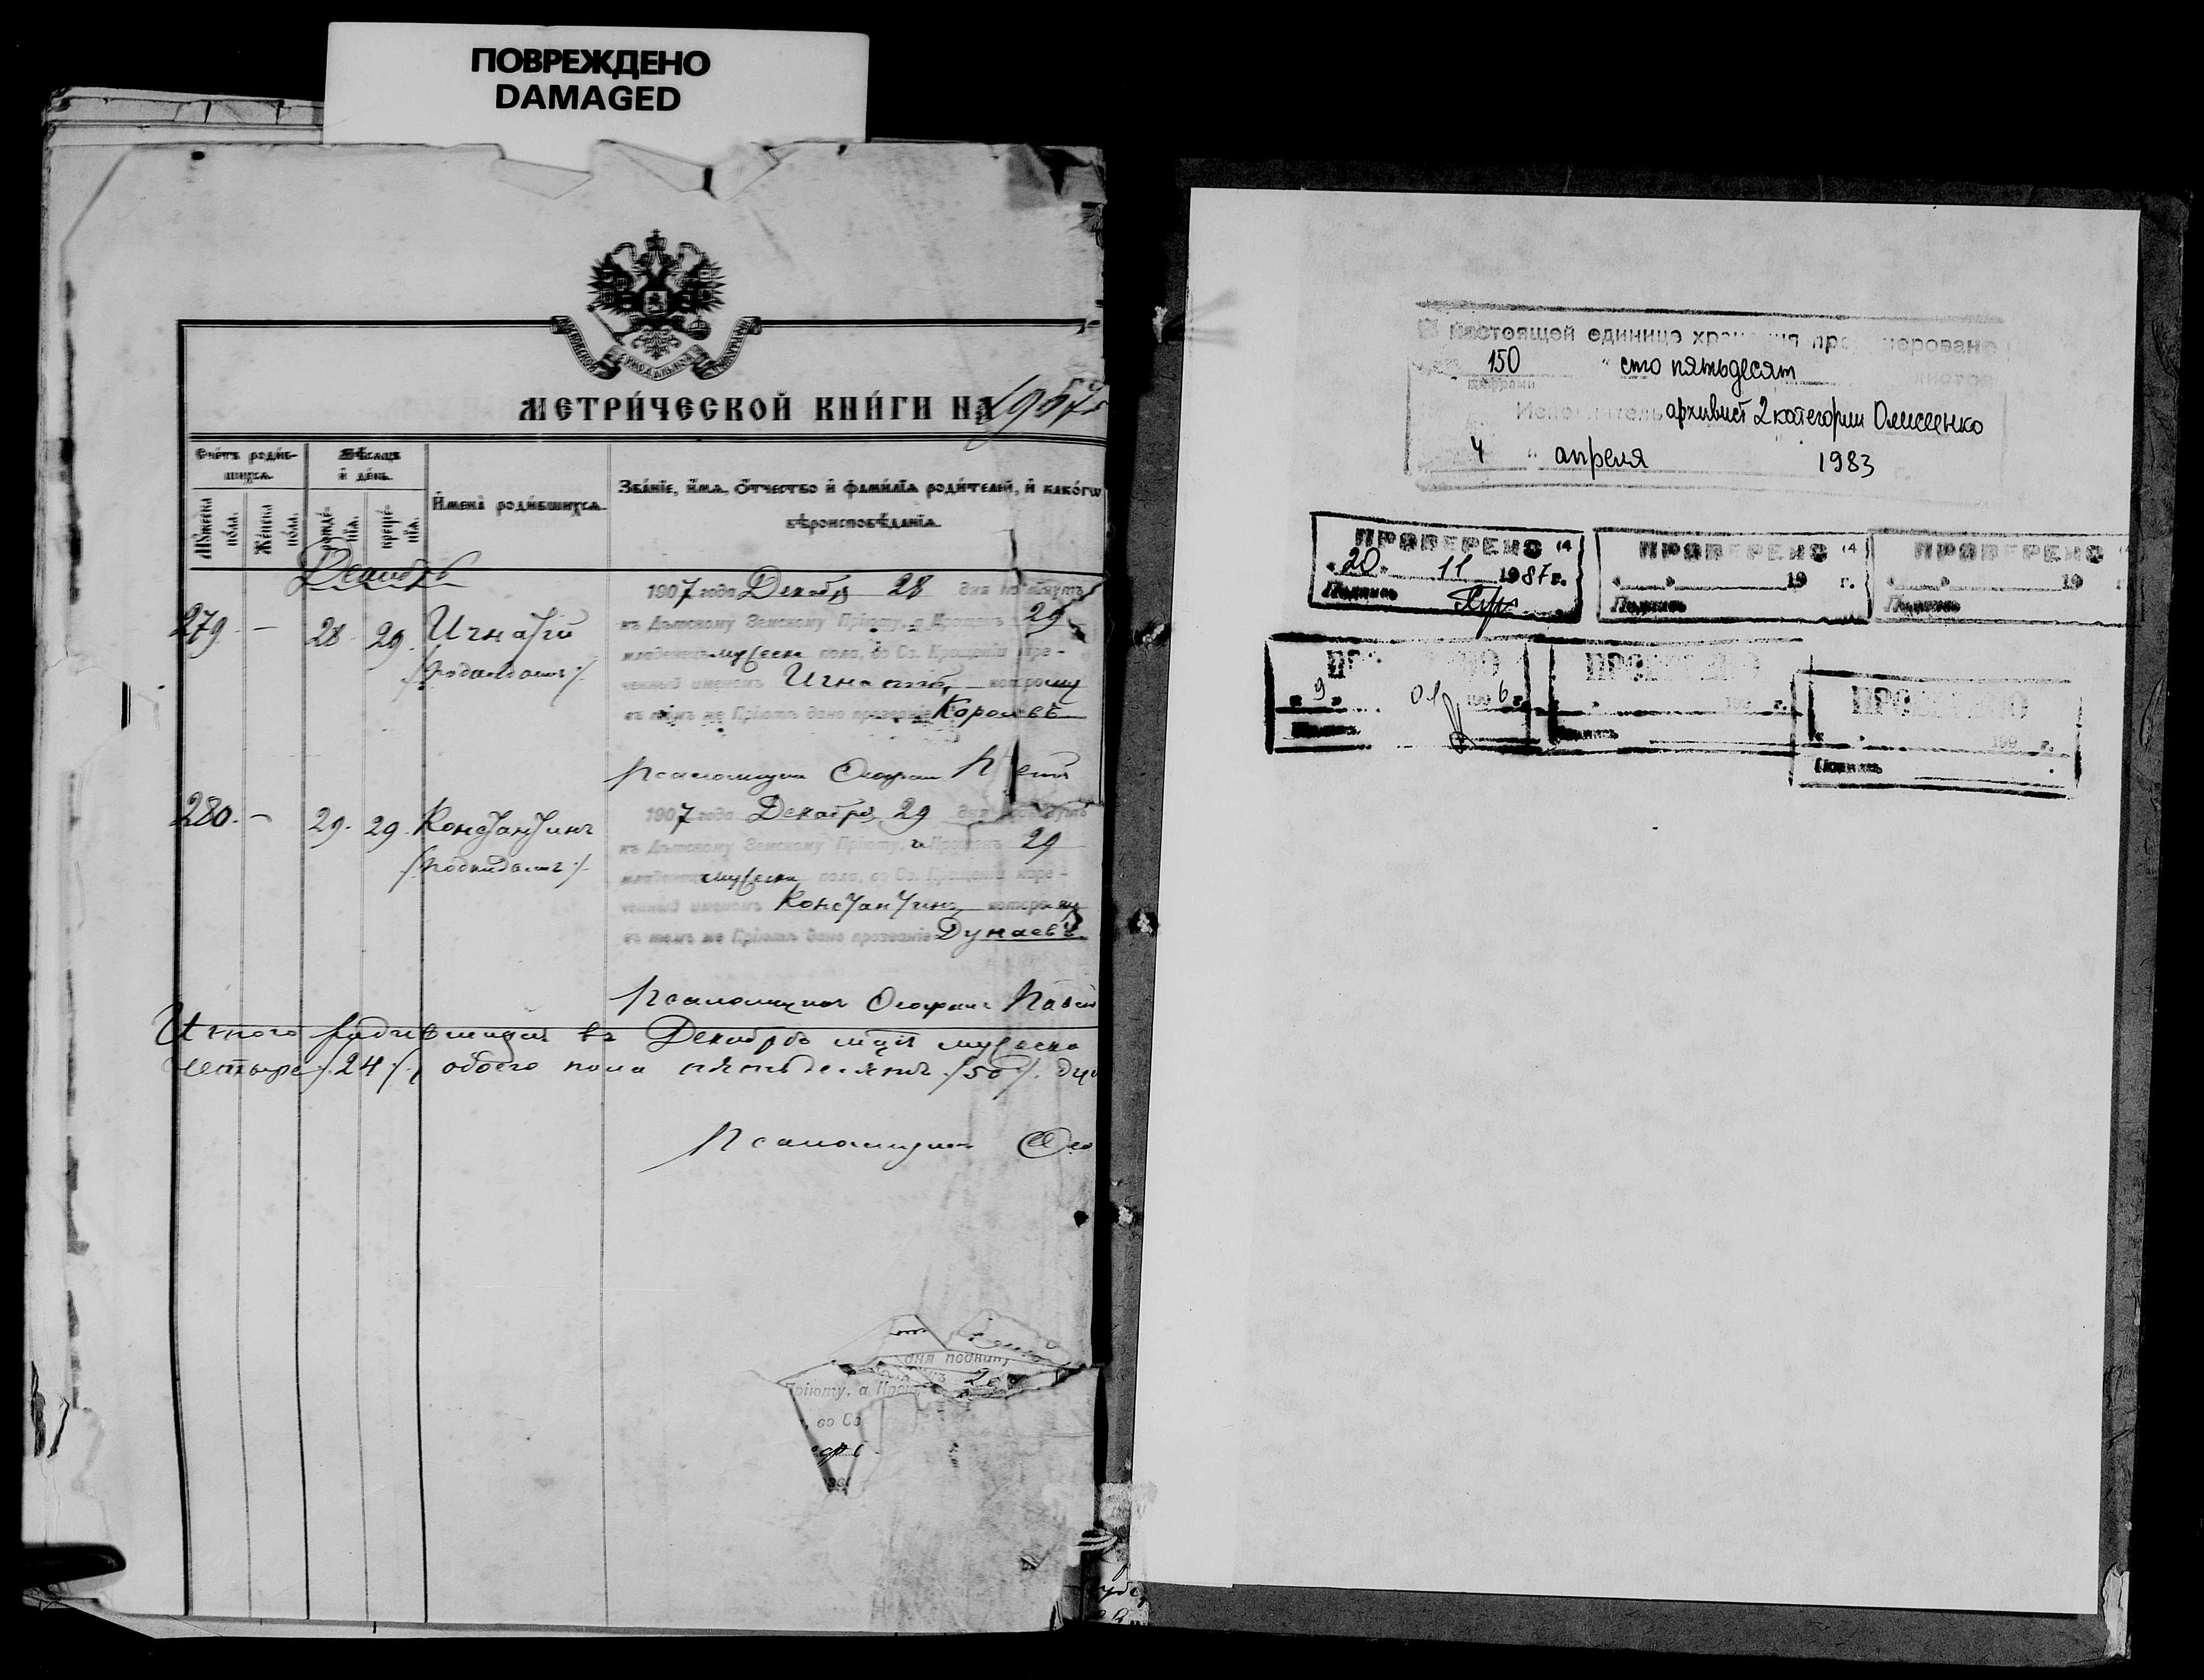 ПОВРЕЖДЕНО
DAMAGED
МЕТРИ́ЧЕСКОЙ КНИ́ГИ НА 1907 г
Сче́тъ роди́в-
шихся.
Мѣ́сяцъ
и҆ де́нь.
Му́жеска
по́ла.
Же́нска
по́ла.
рожде́-
нїѧ.
креще́-
нїѧ.
И҆мена̀ роди́вшихся.
Зва́нїе, и҆́мѧ, ѻ҆́тчество и҆ фами́лїа роди́телей, и҆ како́гѡ
вѣроисповѣ́данїѧ.
Декабрь
279. — 28. 29. Игнатій
/:подкидышъ:/
1907 года Декабря 28 дня подкинутъ
къ Дѣтскому Земскому Пріюту, а Крещенъ 29
младенецъ мужеска пола, во Св. Крещеніи наре-
ченный именемъ Игнатій, которому
въ томъ же Пріютѣ дано прозваніе Королевъ
Псаломщикъ
280. — 29. 29. Константинъ
/:подкидышъ:/
1907 года Декабря 29 дня подкинутъ
къ Дѣтскому Земскому Пріюту, а Крещенъ 29
младенецъ мужеска пола, во Св. Крещеніи наре-
ченный именемъ Константинъ, которому
въ томъ же Пріютѣ дано прозваніе Дунаевъ.
Псаломщикъ
Итого родившихся въ Декабрѣ мцѣ мужеска
четыре /:24:/, обоего пола пятьдесятъ /:50:/. душ
Псаломщикъ
дня подкину
Пріюту, а Кре
, во Св
В настоящей единице хранения пронумеровано
150 " сто пятьдесят
цифрами
Исполнитель архивист 2 категории
4 " апреля 1983
ПРОВЕРЕНО 14
«20» 11 1987 г.
Подпись
ПРОВЕРЕНО 14
« » 19 г.
Подпись
ПРОВЕРЕНО
« » 19 г
Подпись
ПРОВЕРЕНО
« 9 » 01 1996 г.
Подпись
ПРОВЕРЕНО
« » 199 г.
Подпись
ПРОВЕРЕНО
« » 199 г.
Подпись